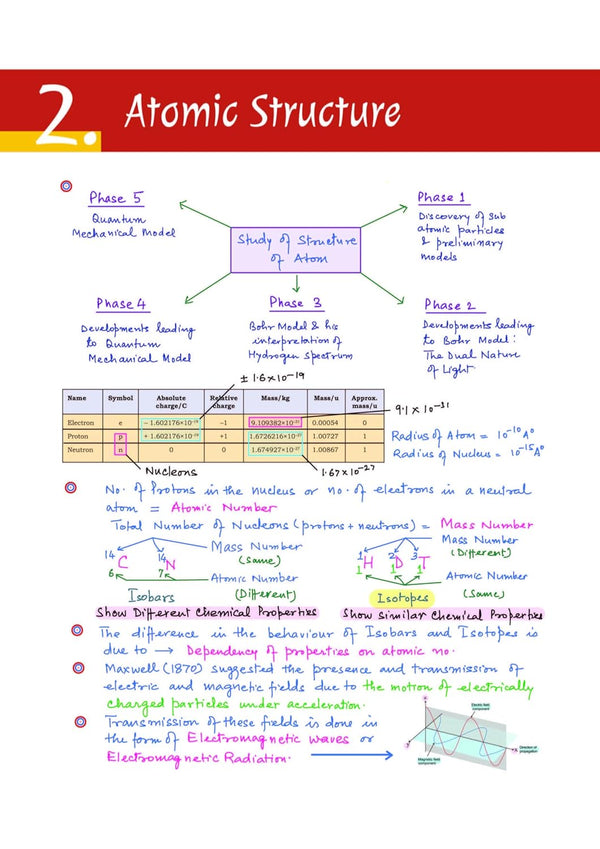 2. Atomic Structure
Phase 5
Quantum
Mechanical Model
Phase 1
Discovery of Sub
atomic particles
& preliminary
models
Study of Structure
of Atom
Phase 4
Developments leading
to Quantum
Mechanical Model
Phase 3
Bohr Model & his
interpretation of
Hydrogen Spectrum
Phase 2
Developments leading
to Bohr Model :
The Dual Nature
of Light.
± 1.6×10⁻¹⁹
Name Symbol Absolute charge/C Relative charge Mass/kg Mass/u Approx. mass/u
Electron e – 1.602176×10⁻¹⁹ –1 9.109382×10⁻³¹ 0.00054 0
Proton p + 1.602176×10⁻¹⁹ +1 1.6726216×10⁻²⁷ 1.00727 1
Neutron n 0 0 1.674927×10⁻²⁷ 1.00867 1
9.1 × 10⁻³¹
Radius of Atom = 10⁻¹⁰ A°
Radius of Nucleus = 10⁻¹⁵ A°
Nucleons
1.67 × 10⁻²⁷
No. of Protons in the nucleus or no. of electrons in a neutral
atom = Atomic Number
Total Number of Nucleons (protons + neutrons) = Mass Number
14 C 6 14 N 7
Mass Number
(Same)
Atomic Number
(Different)
Isobars
Show Different Chemical Properties
1 H 1 2 D 1 3 T 1
Mass Number
(Different)
Atomic Number
(Same)
Isotopes
Show Similar Chemical Properties
The difference in the behaviour of Isobars and Isotopes is
due to → Dependency of properties on atomic no.
Maxwell (1870) suggested the presence and transmission of
electric and magnetic fields due to the motion of electrically
charged particles under acceleration.
Transmission of these fields is done in
the form of Electromagnetic waves or
Electromagnetic Radiation.
Electric field
component
Magnetic field
component
Direction of
propagation